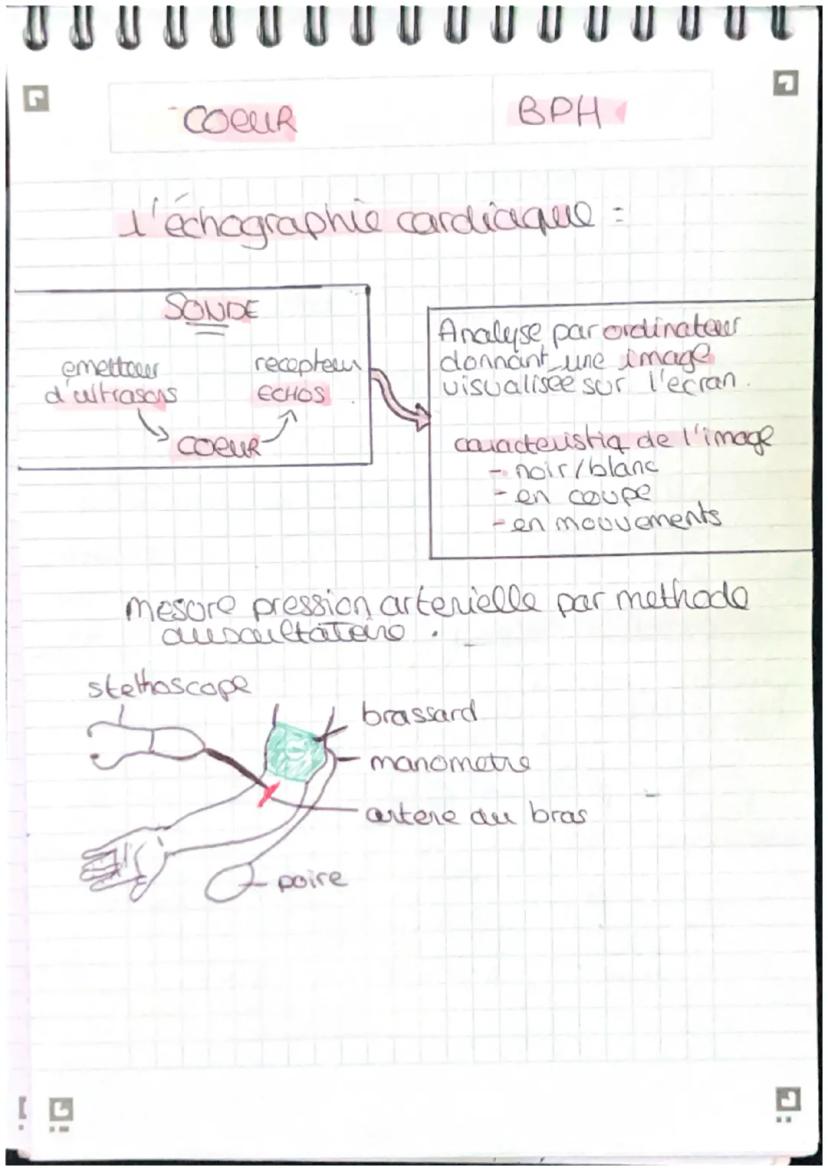 COEUR
BPH
l'échographie cardiaque :
SONDE
emetteur
d'ultrasons
recepteur
ECHOS
COEUR
Analyse par ordinateur
donnant une image
visualisée sur l'ecran.
caracteristiq de l'image
- noir/blanc
- en coupe
- en mouvements
mesure pression arterielle par methode
auscultatoire.
stethoscope
brassard
manometre
artere du bras
poire